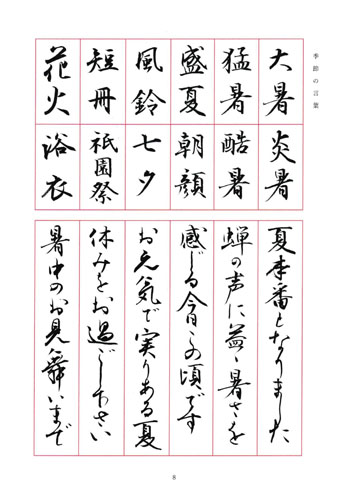 季節の言葉
大暑
炎暑
猛暑
酷暑
盛夏
朝顔
風鈴
七夕
短冊
祇園祭
花火
浴衣
夏本番となりました
蝉の声に益々暑さを
感じる今日この頃です
お元気で実りある夏
休みをお過ごし下さい
暑中のお見舞いまで
8